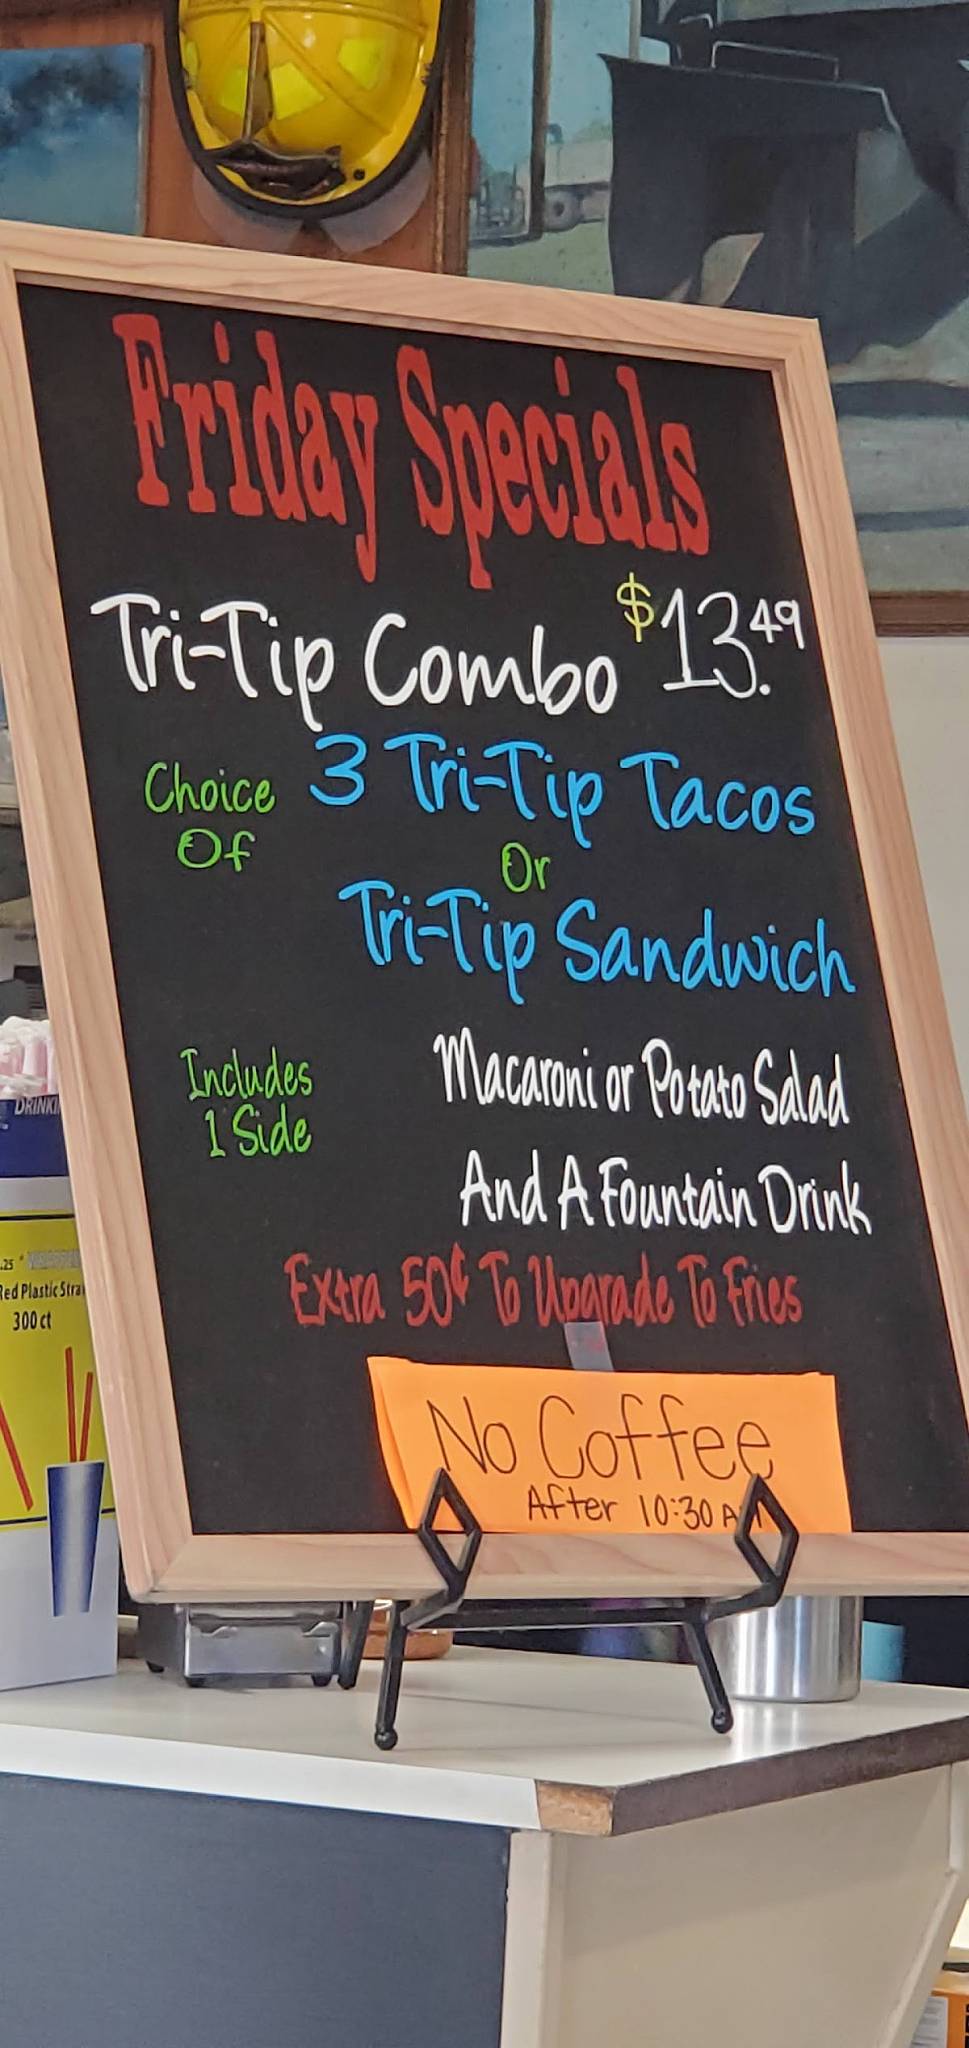 Friday Specials
Tri-Tip Combo $13.49
Choice Of
3 Tri-Tip Tacos
Or
Tri-Tip Sandwich
Includes
1 Side
Macaroni or Potato Salad
And A Fountain Drink
Extra 50¢ To Upgrade To Fries
No Coffee
After 10:30 AM
.25"
Red Plastic
300 ct